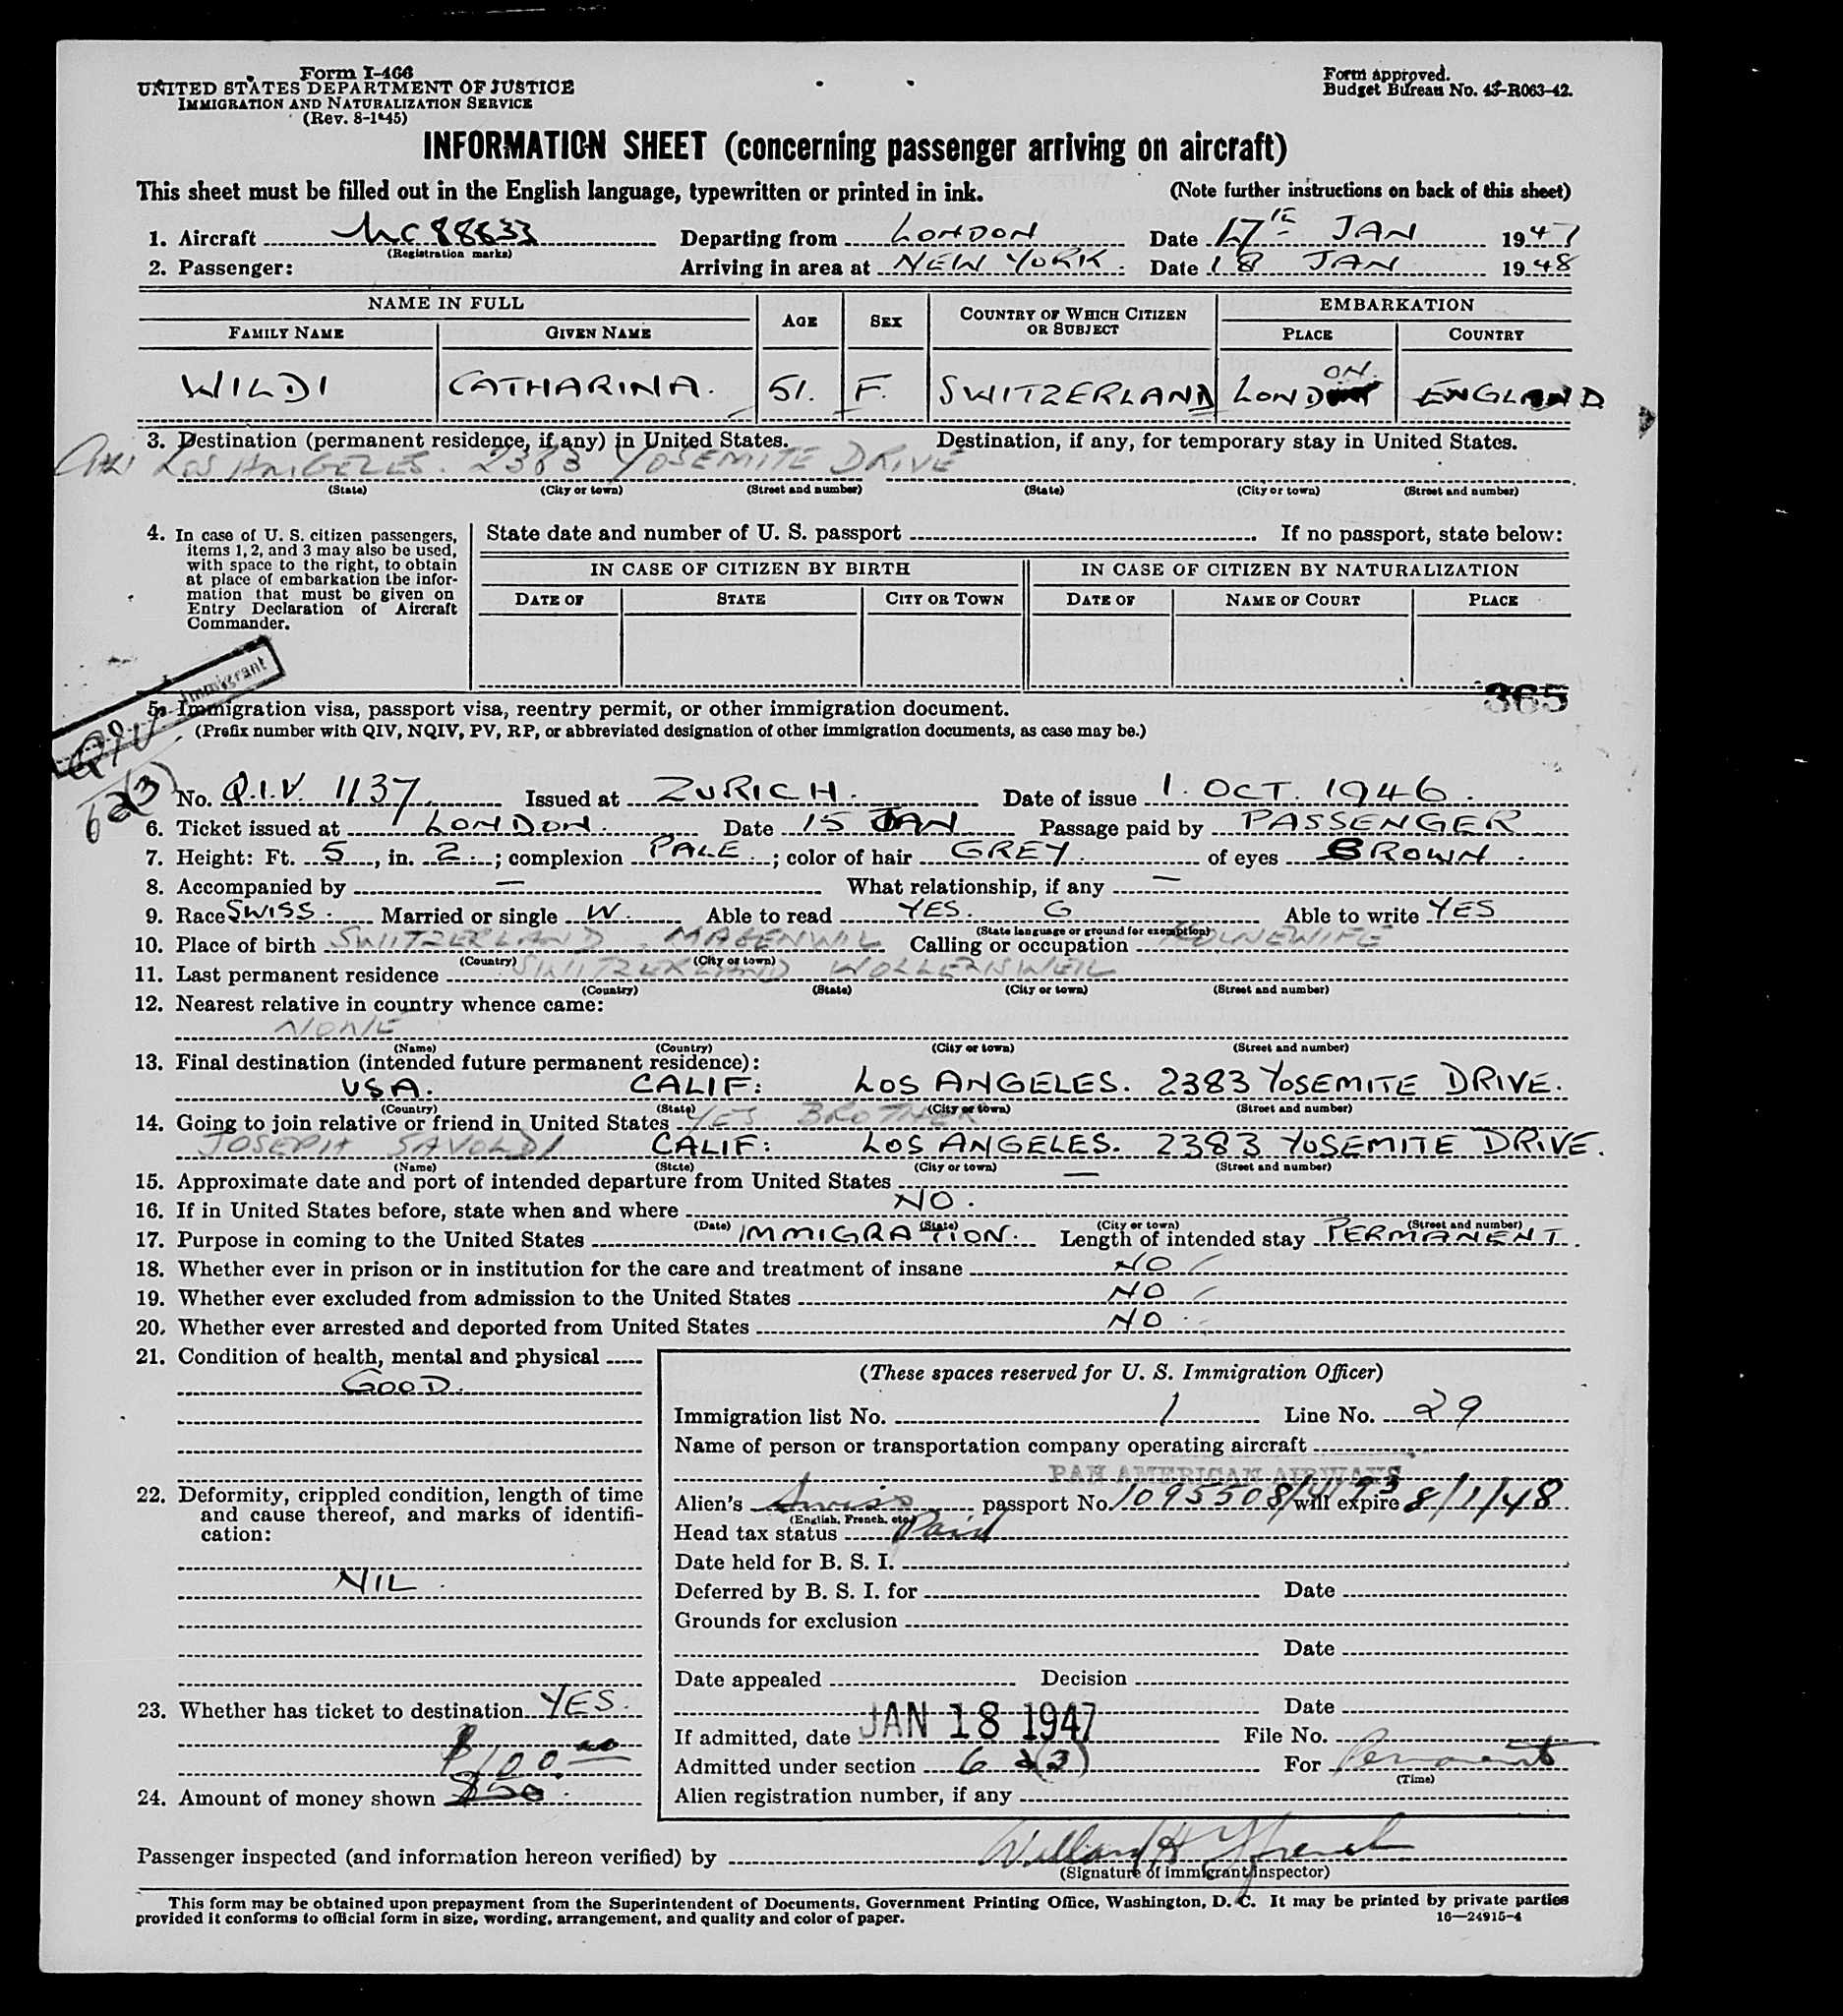 Form I-466
UNITED STATES DEPARTMENT OF JUSTICE
IMMIGRATION AND NATURALIZATION SERVICE
(Rev. 8-1-45)
Form approved.
Budget Bureau No. 43-R063-42.
INFORMATION SHEET (concerning passenger arriving on aircraft)
This sheet must be filled out in the English language, typewritten or printed in ink. (Note further instructions on back of this sheet)
1. Aircraft NC 88833 Departing from LONDON Date 17 JAN 1947
(Registration marks)
2. Passenger: Arriving in area at NEW YORK. Date 18 JAN 1948
NAME IN FULL AGE SEX COUNTRY OF WHICH CITIZEN OR SUBJECT EMBARKATION
FAMILY NAME GIVEN NAME PLACE COUNTRY
WILDI CATHARINA. 51. F. SWITZERLAND LONDON. ENGLAND
3. Destination (permanent residence, if any) in United States. Destination, if any, for temporary stay in United States.
LOS ANGELES. 2383 YOSEMITE DRIVE
(State) (City or town) (Street and number) (State) (City or town) (Street and number)
4. In case of U. S. citizen passengers, items 1, 2, and 3 may also be used, with space to the right, to obtain at place of embarkation the information that must be given on Entry Declaration of Aircraft Commander.
State date and number of U. S. passport If no passport, state below:
IN CASE OF CITIZEN BY BIRTH IN CASE OF CITIZEN BY NATURALIZATION
DATE OF STATE CITY OR TOWN DATE OF NAME OF COURT PLACE
Immigrant
QIV
6a(3)
365
5. Immigration visa, passport visa, reentry permit, or other immigration document.
(Prefix number with QIV, NQIV, PV, RP, or abbreviated designation of other immigration documents, as case may be.)
No. Q.I.V. 1137. Issued at ZURICH. Date of issue 1. OCT. 1946.
6. Ticket issued at LONDON. Date 15 JAN Passage paid by PASSENGER
7. Height: Ft. 5, in. 2.; complexion PALE.; color of hair GREY. of eyes BROWN.
8. Accompanied by — What relationship, if any —
9. Race SWISS. Married or single W. Able to read YES. G Able to write YES
(State language or ground for exemption)
10. Place of birth SWITZERLAND. MAGENWIL Calling or occupation HOUSEWIFE
(Country) (City or town)
11. Last permanent residence SWITZERLAND
(Country) (State) (City or town) (Street and number)
12. Nearest relative in country whence came:
NONE
(Name) (Country) (City or town) (Street and number)
13. Final destination (intended future permanent residence):
USA. CALIF: LOS ANGELES. 2383 YOSEMITE DRIVE.
(Country) (State) (City or town) (Street and number)
14. Going to join relative or friend in United States YES BROTHER
JOSEPH SAVOLDI CALIF: LOS ANGELES. 2383 YOSEMITE DRIVE.
(Name) (State) (City or town) (Street and number)
15. Approximate date and port of intended departure from United States —
16. If in United States before, state when and where NO.
(Date) (State) (City or town) (Street and number)
17. Purpose in coming to the United States IMMIGRATION. Length of intended stay PERMANENT.
18. Whether ever in prison or in institution for the care and treatment of insane NO
19. Whether ever excluded from admission to the United States NO
20. Whether ever arrested and deported from United States NO
21. Condition of health, mental and physical
GOOD.
22. Deformity, crippled condition, length of time and cause thereof, and marks of identification:
NIL.
23. Whether has ticket to destination YES.
$100.00
24. Amount of money shown $50.
(These spaces reserved for U. S. Immigration Officer)
Immigration list No. 1 Line No. 29
Name of person or transportation company operating aircraft
PAN AMERICAN AIRWAYS
Alien's Swiss passport No. 1095508/4193 will expire 8/1/48
(English, French, etc.)
Head tax status Paid
Date held for B. S. I.
Deferred by B. S. I. for Date
Grounds for exclusion
Date
Date appealed Decision
Date
If admitted, date JAN 18 1947 File No.
Admitted under section 6 a(3) For Permanent
(Time)
Alien registration number, if any
Passenger inspected (and information hereon verified) by Willard H French
(Signature of immigrant inspector)
This form may be obtained upon prepayment from the Superintendent of Documents, Government Printing Office, Washington, D. C. It may be printed by private parties
provided it conforms to official form in size, wording, arrangement, and quality and color of paper. 16—24915-4